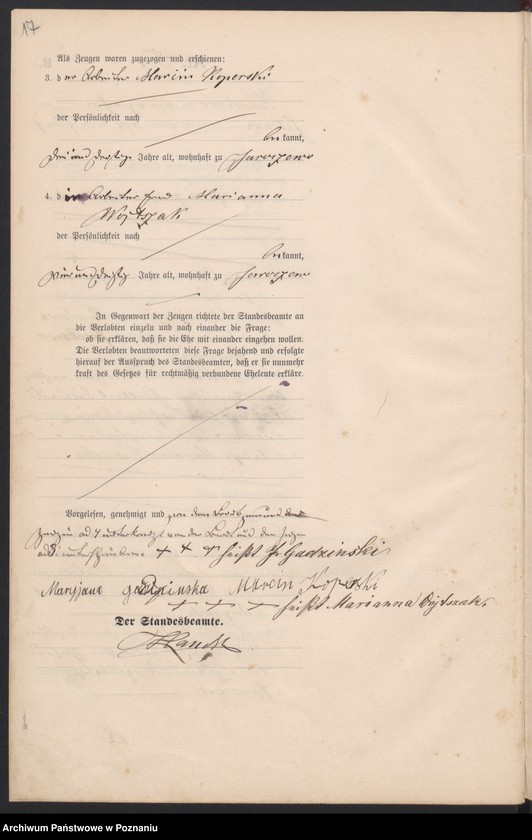 17
Als Zeugen waren zugezogen und erschienen:
3. der Arbeiter Marcin Koperski
der Persönlichkeit nach
bekannt,
drei und dreißig Jahre alt, wohnhaft zu Jaroszewo
4. die Arbeiterfrau Marianna
Wojtszak
der Persönlichkeit nach
bekannt,
vier und dreißig Jahre alt, wohnhaft zu Jaroszewo
In Gegenwart der Zeugen richtete der Standesbeamte an
die Verlobten einzeln und nach einander die Frage:
ob sie erklären, daß sie die Ehe mit einander eingehen wollen.
Die Verlobten beantworteten diese Frage bejahend und erfolgte
hierauf der Ausspruch des Standesbeamten, daß er sie nunmehr
kraft des Gesetzes für rechtmäßig verbundene Eheleute erkläre.
Vorgelesen, genehmigt und von dem Bräutigam und
Zeugin ad 4 unterkreuzt von der Braut und dem Zeugen
ad 3 unterschrieben. + + + heißt Gadzinski
Maryjane Marcin Koperski
+ + + heißt Marianna Wojtszak.
Der Standesbeamte.
Archiwum Państwowe w Poznaniu